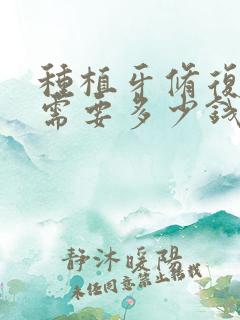 種植牙脩復
需要多少錢
静沐暖陽
未経同意禁止転載